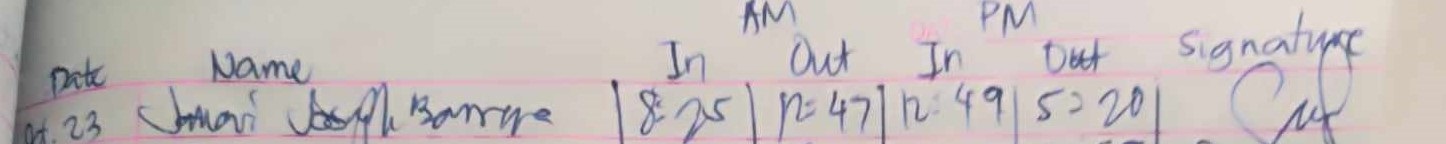 AM PM
Date Name In Out In Out Signature
Oct. 23 Jomari Joseph 8:25 12:47 12:49 5:20